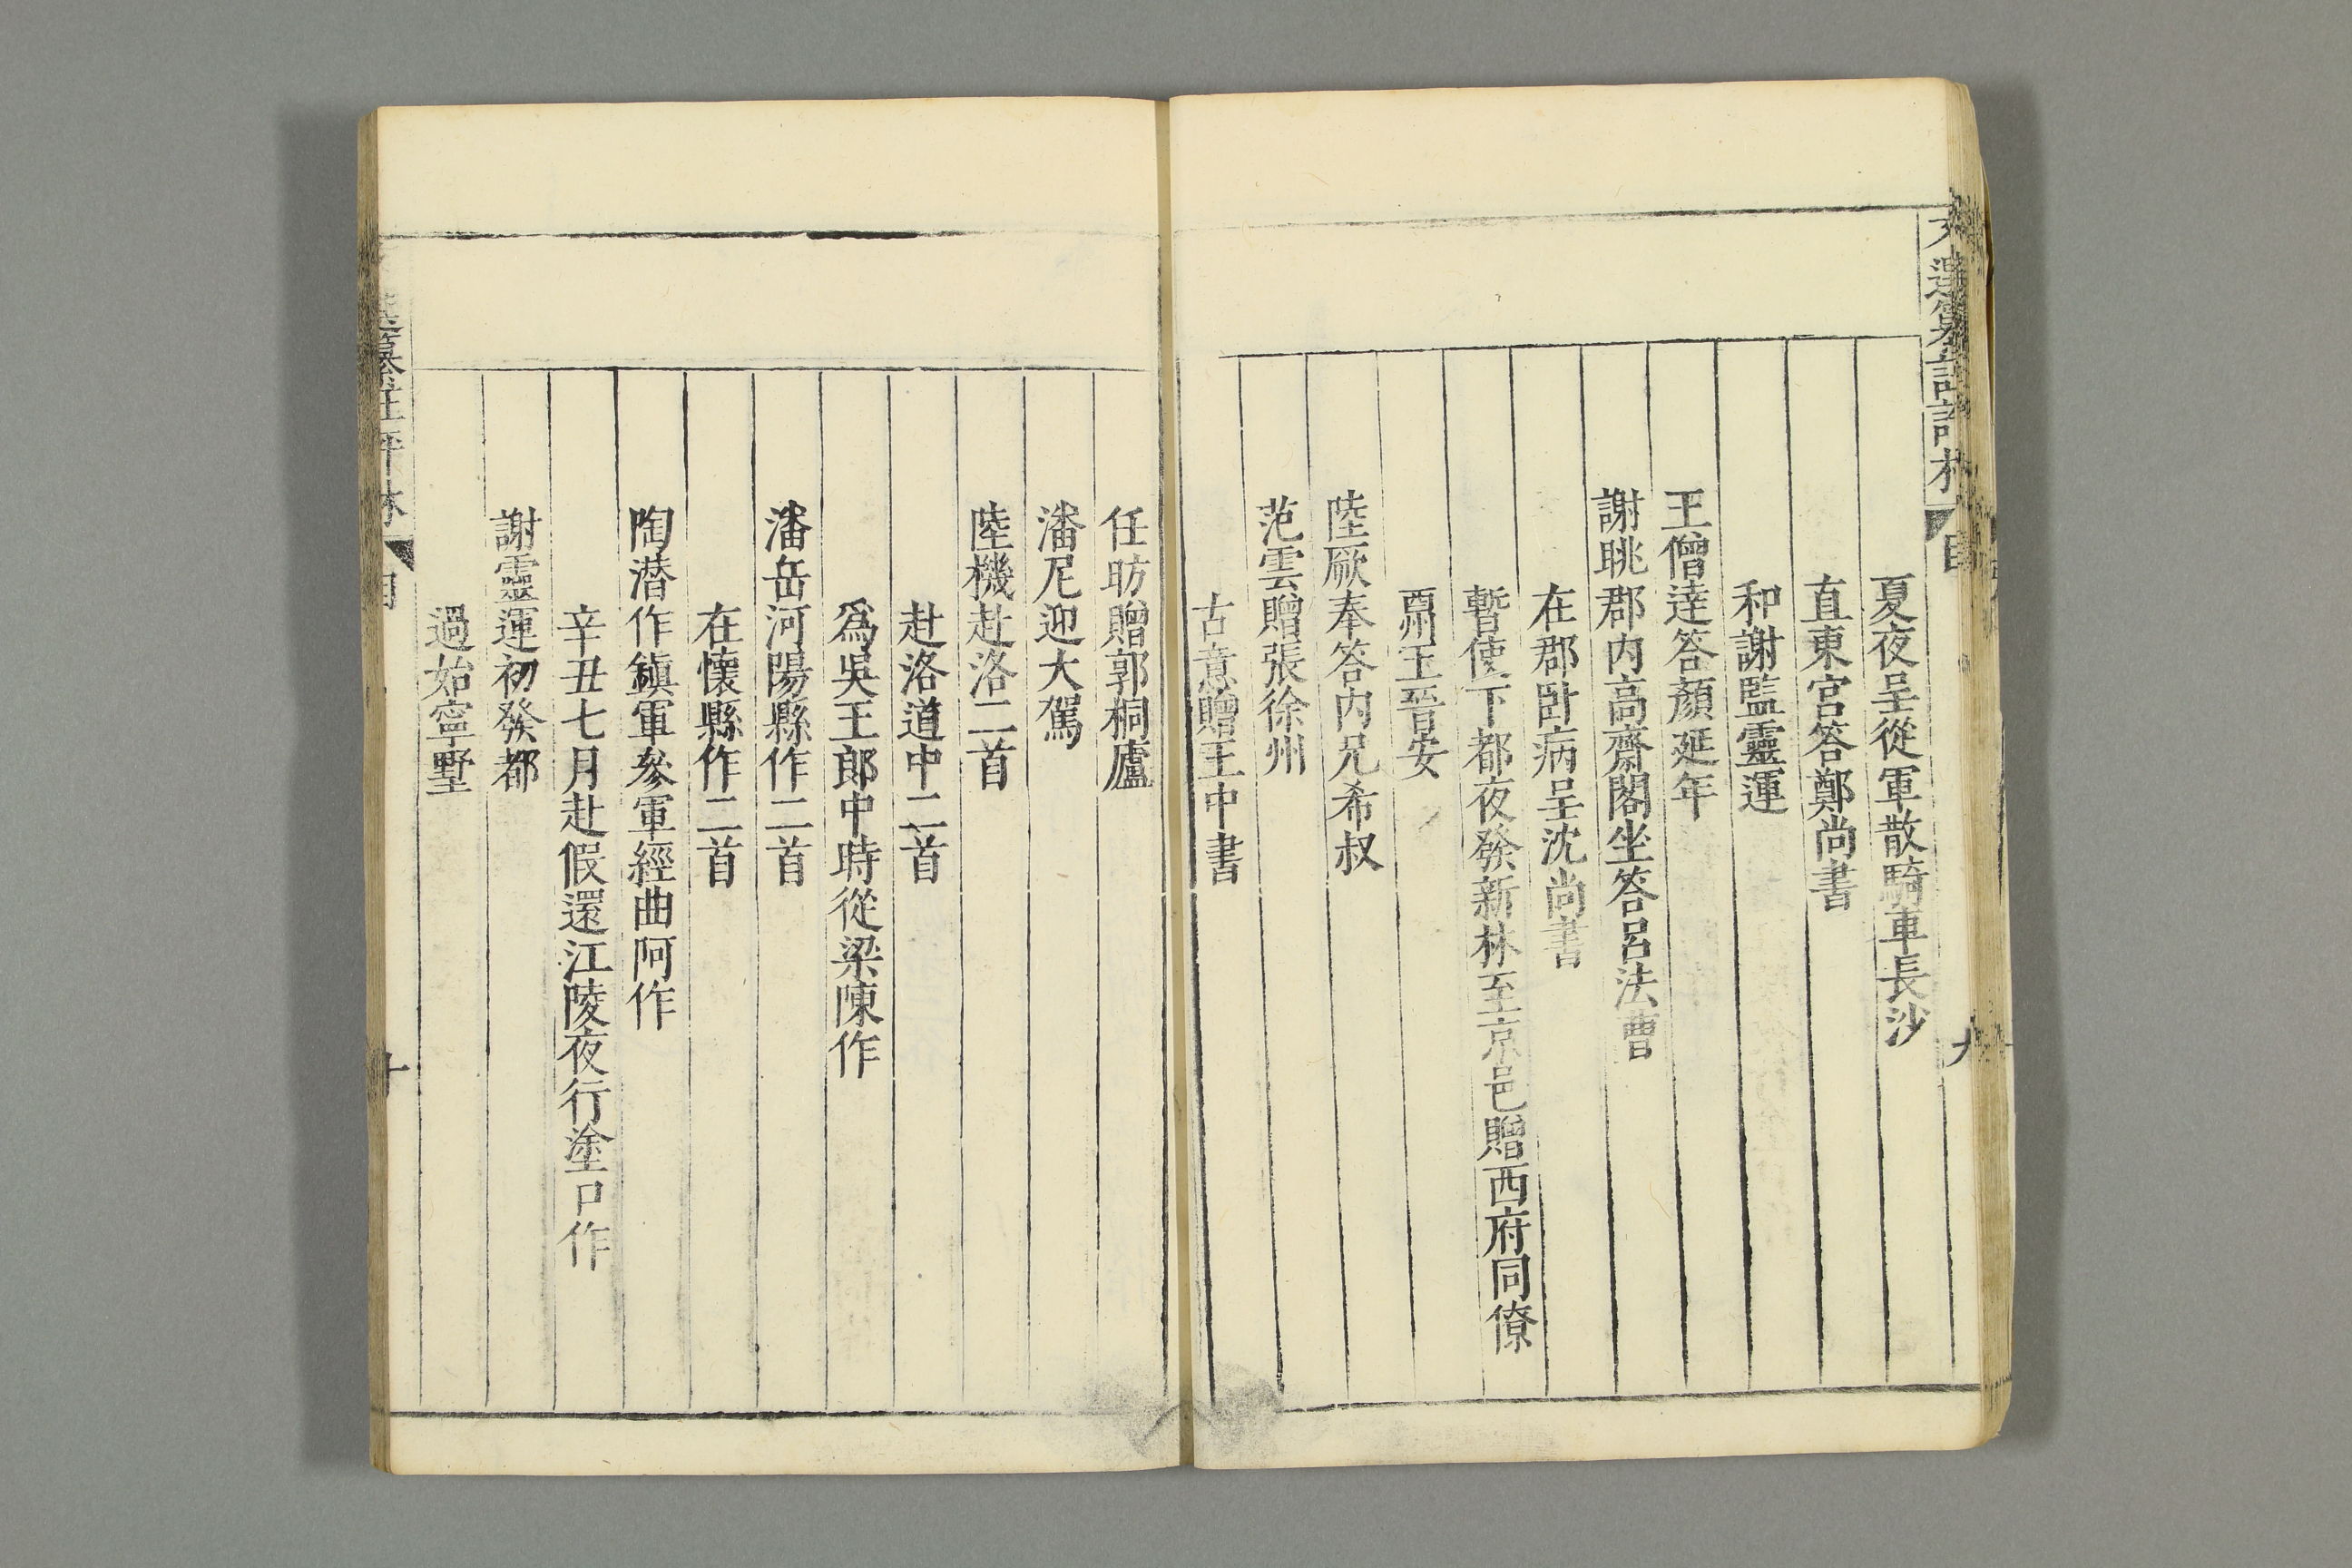 文選纂註評林
目
九
夏夜呈從軍散騎車長沙
直東宮答鄭尚書
和謝監靈運
王僧達答顏延年
謝眺郡内高齋閣坐答呂法曹
在郡卧病呈沈尚書
暫使下都夜發新林至京邑贈西府同僚
酬王晉安
陸厥奉答内兄希叔
范雲贈張徐州
古意贈王中書
任昉贈郭桐廬
潘尼迎大駕
陸機赴洛二首
赴洛道中二首
爲吳王郎中時從梁陳作
潘岳河陽縣作二首
在懷縣作二首
陶潜作鎮軍參軍經曲阿作
辛丑七月赴假還江陵夜行塗口作
謝靈運初發都
過始寧墅
選纂註評林
目
十